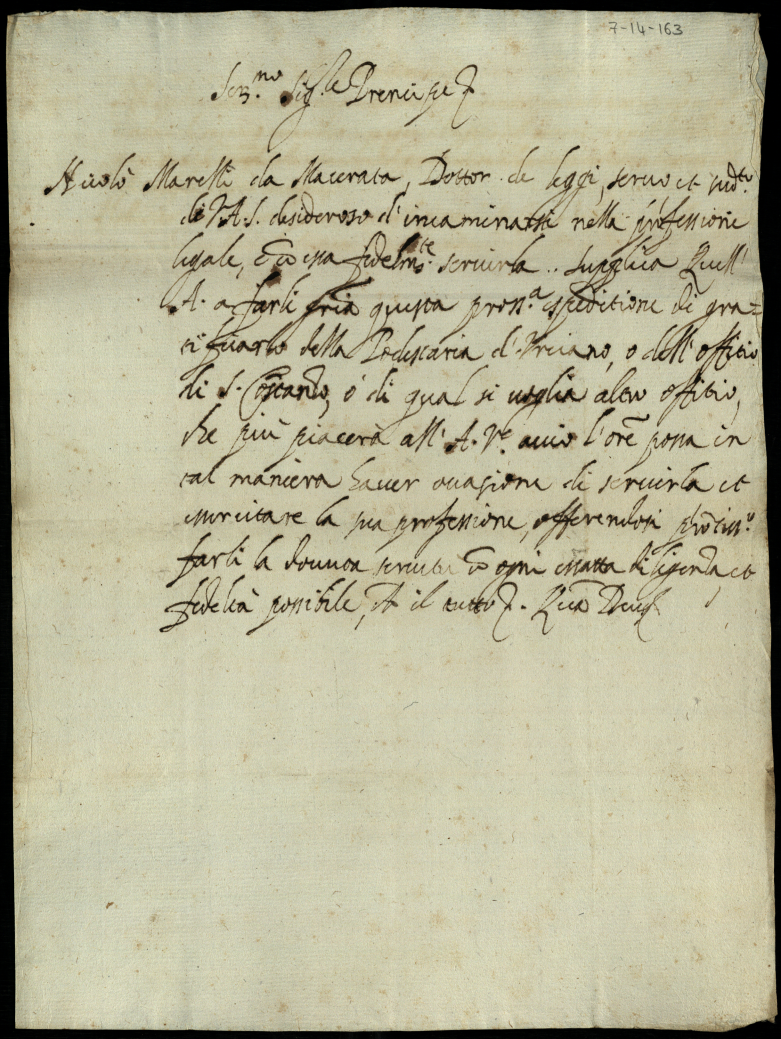 7-14-163
Ser.mo Sig.re Prencipe
Nicolò Maretti da Macerata, Dottor de leggi, servo et sud.to
di V.A.S. desideroso d'incaminarsi nella professione
legale, è cō essa fedelm.te servirla .. supplica Quell'
A. a farli gr̄ia questa pross.a espeditione di gra=
tificarlo della Podestaria d'Orciano, o dell'offitio
di S. Costanzo, ó di qual si voglia altro offitio,
che più piacerà all'A.V. acciò l'ore possa in
tal maniera haver occasione di servirla et
essercitare la sua professione, offerendosi
farli la dovuta servitù cō ogni essatta diligenza, et
fedeltà possibile, Et il tutto. Quā Deus